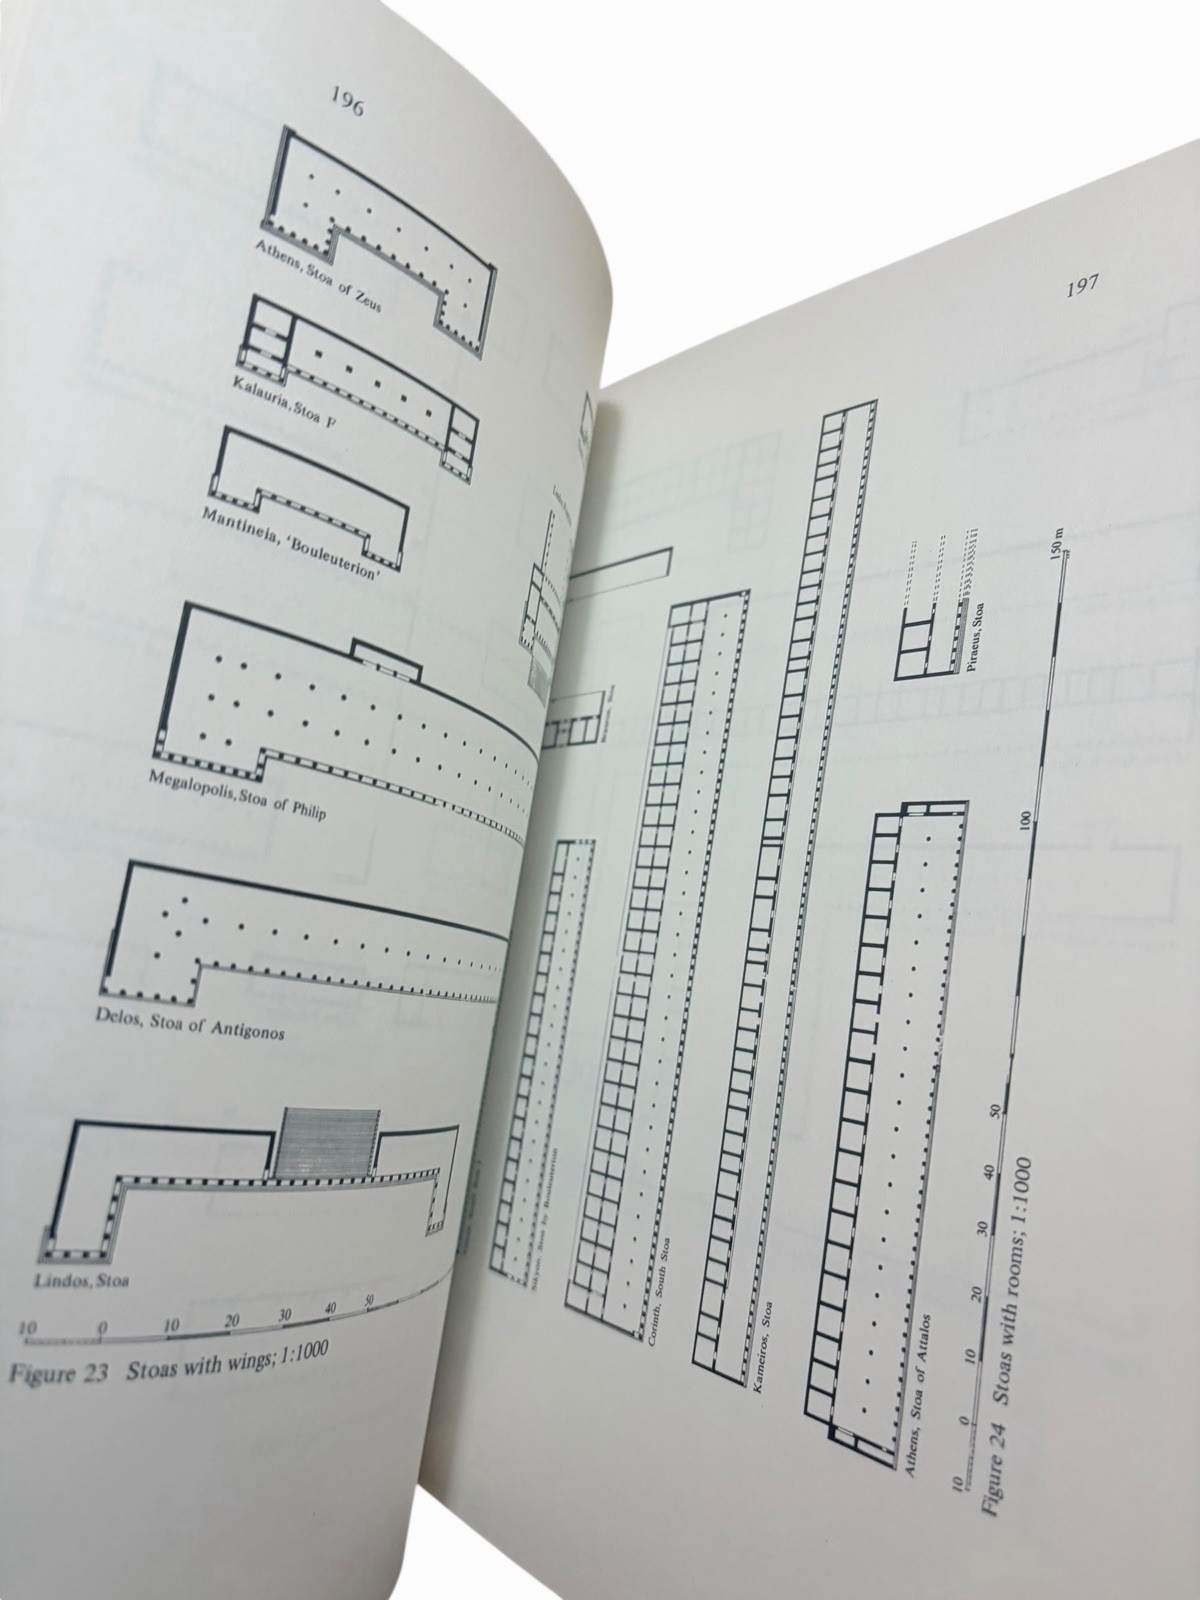 196
Athens, Stoa of Zeus
Kalauria, Stoa F
Mantineia, ‘Bouleuterion’
Megalopolis, Stoa of Philip
Delos, Stoa of Antigonos
Lindos, Stoa
10 0 10 20 30 40 50
Figure 23 Stoas with wings; 1:1000
197
Sikyon, Stoa by Bouleuterion
Corinth, South Stoa
Kameiros, Stoa
Piraeus, Stoa
Athens, Stoa of Attalos
10 0 10 20 30 40 50 100 150 m
Figure 24 Stoas with rooms; 1:1000